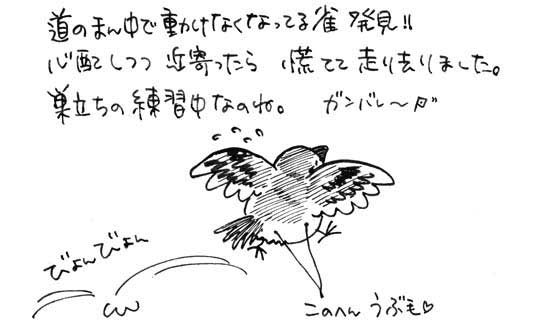 道のまん中で動けなくなってる雀 発見!!
心配しつつ 近寄ったら 慌てて走り去りました。
巣立ちの練習中なのね。 ガンバレ〜
びょんびょん
このへん うぶ毛♡